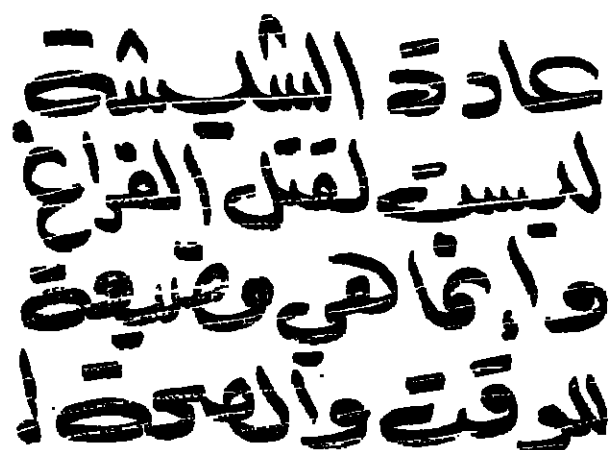 عادة الشيشة
ليست لقتل الفراغ
وإنما هي مضيعة
للوقت والصحة !